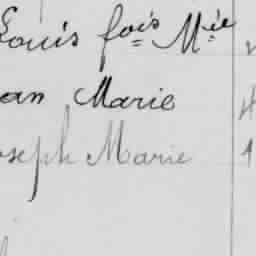 Louis fois Mie
an Marie
oseph Marie 1